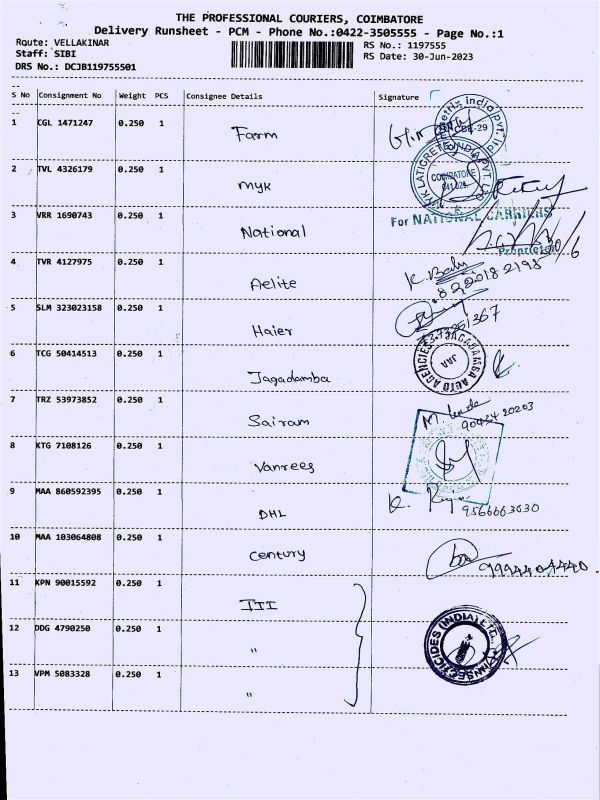 THE PROFESSIONAL COURIERS, COIMBATORE
Delivery Runsheet - PCM - Phone No.:0422-3505555 - Page No.:1
Route: VELLAKINAR
RS No.: 1197555
Staff: SIBI
RS Date: 30-Jun-2023
DRS No.: DCJB119755501
S No Consignment No Weight PCS Consignee Details Signature
1 CGL 1471247 0.250 1 Farm
2 TVL 4326179 0.250 1 myk
COIMBATORE
3 VRR 1690743 0.250 1 National
For NATIONAL CARRIERS
Proprietor
4 TVR 4127975 0.250 1 Aelite
5 SLM 323023158 0.250 1 Haier
6 TCG 50414513 0.250 1 Jagadamba
JAGADAMBA AUTO AGENCIES
7 TRZ 53973852 0.250 1 Sairam
90434 20203
8 KTG 7108126 0.250 1 Vanrees
9 MAA 860592395 0.250 1 DHL
9566663030
10 MAA 103064808 0.250 1 Century
9994404440.
11 KPN 90015592 0.250 1 III
12 DDG 4790250 0.250 1 "
INSECTICIDES (INDIA) LTD.
13 VPM 5083328 0.250 1 "